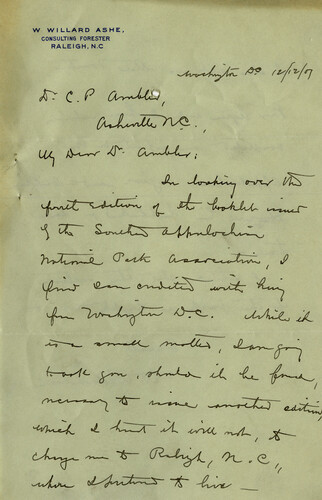 W WILLARD ASHE,
CONSULTING FORESTER
RALEIGH, N.C
Washington DC 12/12/07
Dr C. P. Ambler,
Asheville N.C.,
My Dear Dr. Ambler:
In looking over the
first edition of the booklet issued
by the Southern Appalachian
National Park Association, I
find I am credited with being
from Washington D.C. While it
is a small matter, I am going
to ask you, should it be found
necessary to issue another edition,
which I trust it will not, to
change me to Raleigh, N.C.,
where I pretend to live —